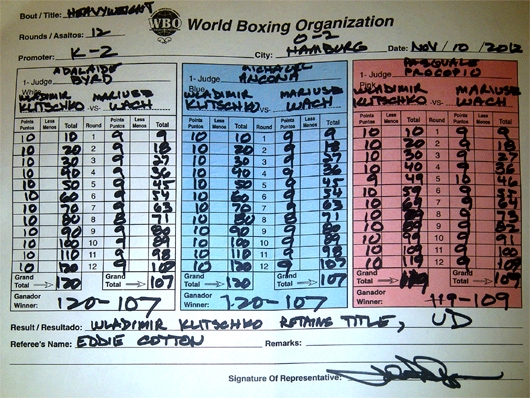 Bout / Title: HEAVYWEIGHT
WBO World Boxing Organization
Rounds / Asaltos: 12
0-2
Promoter: K-2 City: HAMBURG Date: NOV/10/2012
1- Judge ADALAIDE BYRD
White
WLADIMIR KLITSCHKO -VS- MARIUSZ WACH
Points Puntos Less Menos Total Round Points Puntos Less Menos Total
10 10 1 9 9
10 20 2 9 18
10 30 3 9 27
10 40 4 9 36
10 50 5 9 45
10 60 6 9 54
10 70 7 9 63
10 80 8 8 71
10 90 9 9 80
10 100 10 9 89
10 110 11 9 98
10 120 12 9 107
Grand Total 120 Grand Total 107
Ganador Winner: 120-107
1- Judge MICHAEL ANCONA
Blue
WLADIMIR KLITSCHKO -VS- MARIUSZ WACH
Points Puntos Less Menos Total Round Points Puntos Less Menos Total
10 10 1 9 9
10 20 2 9 18
10 30 3 9 27
10 40 4 9 36
10 50 5 9 45
10 60 6 9 54
10 70 7 9 63
10 80 8 8 71
10 90 9 9 80
10 100 10 9 89
10 110 11 9 98
10 120 12 9 107
Grand Total 120 Grand Total 107
Ganador Winner: 120-107
1- Judge PASQUALE PROCOPIO
Pink
WLADIMIR KLITSCHKO -VS- MARIUSZ WACH
Points Puntos Less Menos Total Round Points Puntos Less Menos Total
10 10 1 9 9
10 20 2 9 18
10 30 3 9 27
10 40 4 9 36
9 49 5 10 46
10 59 6 9 55
10 69 7 9 64
10 79 8 9 73
10 89 9 9 82
10 99 10 9 91
10 109 11 9 100
10 119 12 9 109
Grand Total 119 Grand Total 107
Ganador Winner: 119-109
Result / Resultado: WLADIMIR KLITSCHKO RETAINS TITLE, UD
Referee's Name: EDDIE COTTON Remarks:
Signature Of Representative: